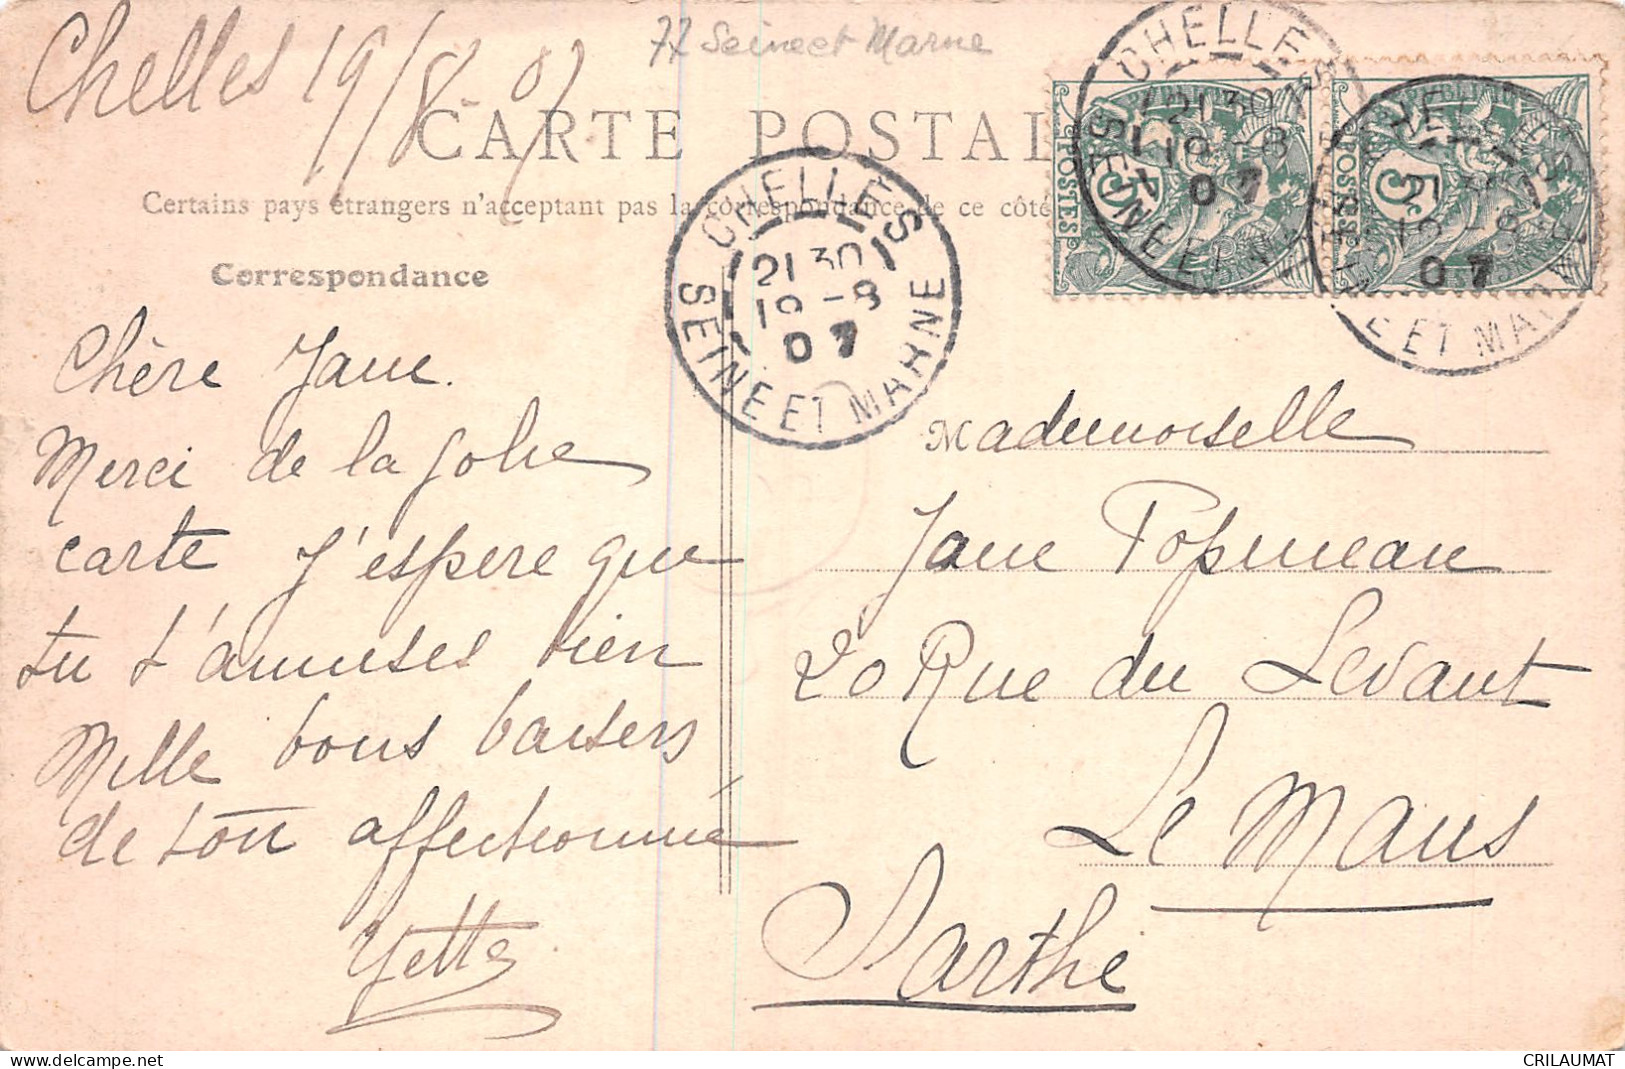 Chelles 19/8/07
77 Seine et Marne
CARTE POSTAL
Certains pays étrangers n'acceptent pas la correspondance de ce côté
Correspondance
CHELLES
21 30
19 -8
07
SEINE ET MARNE
CHELLES
21 30
19 -8
07
SEINE ET
POSTES
5
POSTES
5
07
ET MARNE
Chère Jane.
Merci de la jolie
carte J'espère que
tu t'amuses bien
Mille bons baisers
de ton affectionnée
Yette
Mademoiselle
Jane Popineau
20 Rue du Levant
Le Mans
Sarthe
CRILAUMAT
delcampe.net